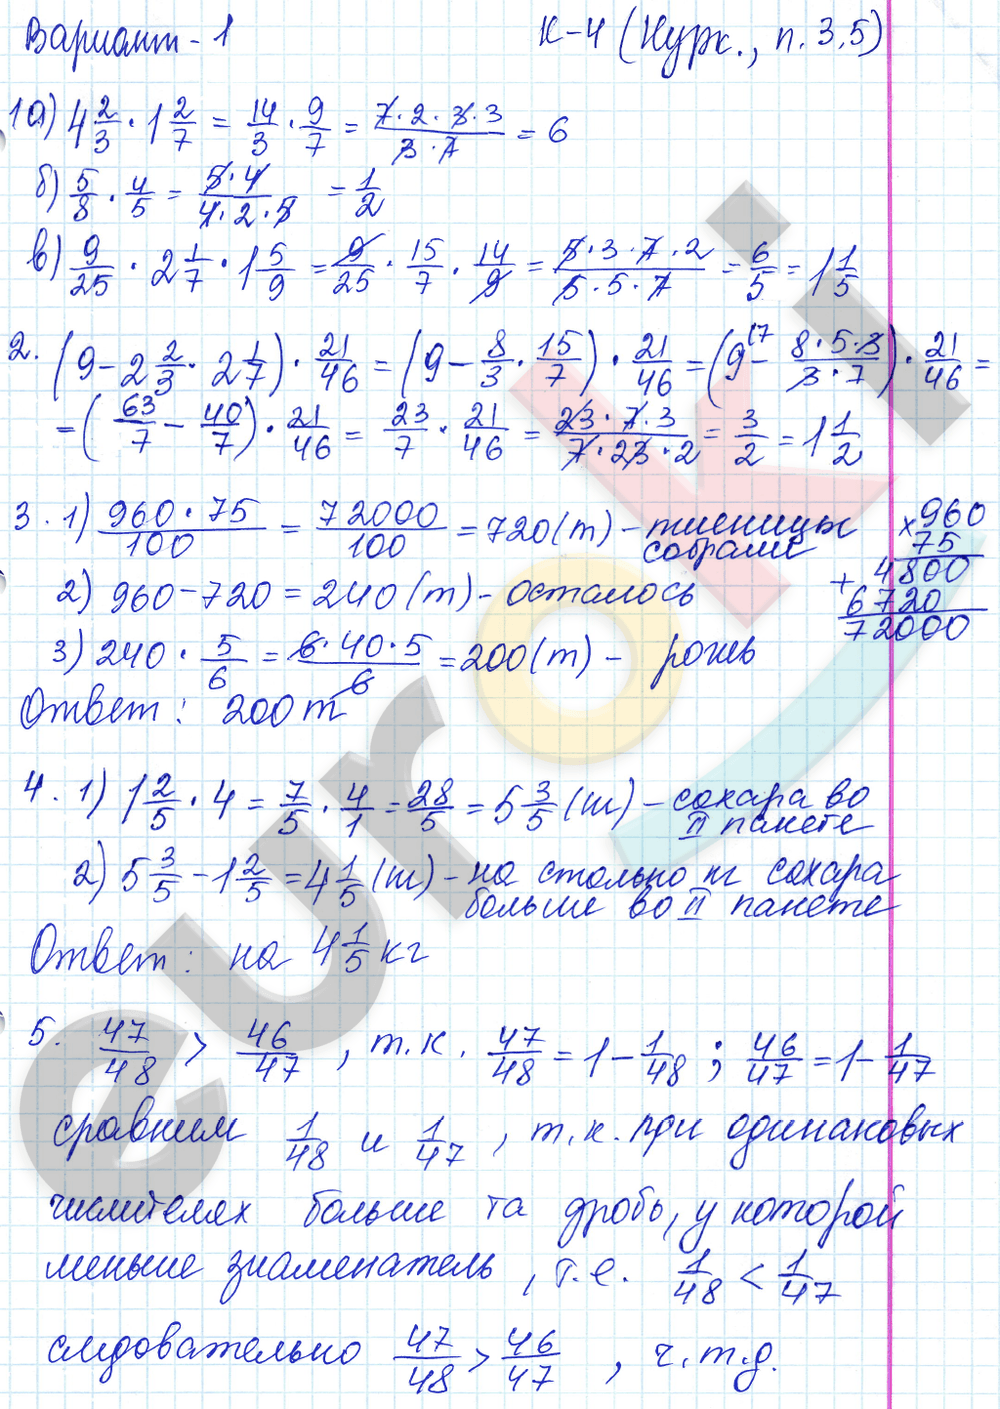 Вариант-1 К-4 (Нурк., п. 3,5)
1а) 4 2/3 · 1 2/7 = 14/3 · 9/7 = 7·2·3·3/3·7 = 6
б) 5/8 · 4/5 = 5·4/4·2·5 = 1/2
в) 9/25 · 2 1/7 · 1 5/9 = 9/25 · 15/7 · 14/9 = 5·3·7·2/5·5·7 = 6/5 = 1 1/5
2. (9 - 2 2/3 · 2 1/7) · 21/46 = (9 - 8/3 · 15/7) · 21/46 = (9(7 - 8·5·3/3·7) · 21/46 =
= (63/7 - 40/7) · 21/46 = 23/7 · 21/46 = 23·7·3/7·23·2 = 3/2 = 1 1/2
3. 1) 960·75/100 = 72000/100 = 720 (т) - пшеницы
собрали
2) 960 - 720 = 240 (т) - осталось
3) 240 · 5/6 = 6·40·5/6 = 200 (т) - рожь
×960
75
+4800
6720
72000
Ответ: 200 т
4. 1) 1 2/5 · 4 = 7/5 · 4/1 = 28/5 = 5 3/5 (кг) - сахара во
II пакете
2) 5 3/5 - 1 2/5 = 4 1/5 (кг) - на столько кг сахара
больше во II пакете
Ответ: на 4 1/5 кг
5. 47/48 > 46/47, т.к. 47/48 = 1 - 1/48; 46/47 = 1 - 1/47
сравним 1/48 и 1/47, т.к. при одинаковых
числителях больше та дробь, у которой
меньше знаменатель, т.е. 1/48 < 1/47
следовательно 47/48 > 46/47, ч.т.д.
euroki